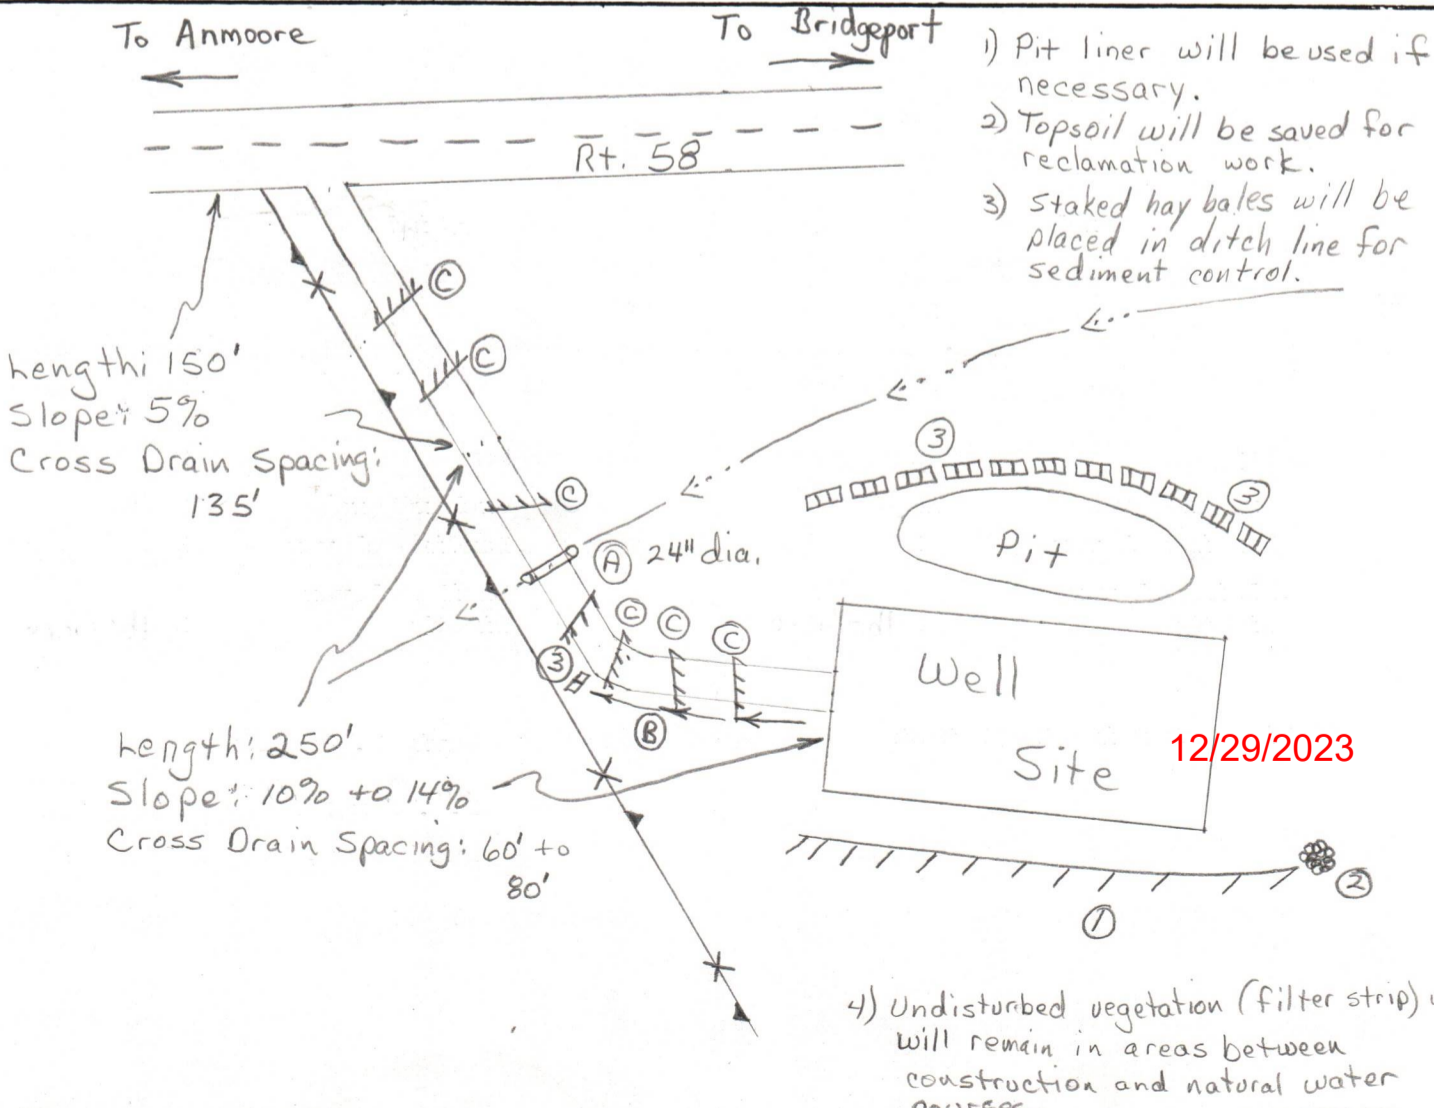 To Anmoore
To Bridgeport
Rt. 58
1) Pit liner will be used if
necessary.
2) Topsoil will be saved for
reclamation work.
3) Staked hay bales will be
placed in ditch line for
sediment control.
C
C
Length: 150'
Slope: 5%
Cross Drain Spacing:
135'
C
A 24" dia.
3
3
Pit
C
C
C
3
B
Well
Site
12/29/2023
Length: 250'
Slope: 10% to 14%
Cross Drain Spacing: 60' to
80'
1
2
4) Undisturbed vegetation (filter strip)
will remain in areas between
construction and natural water